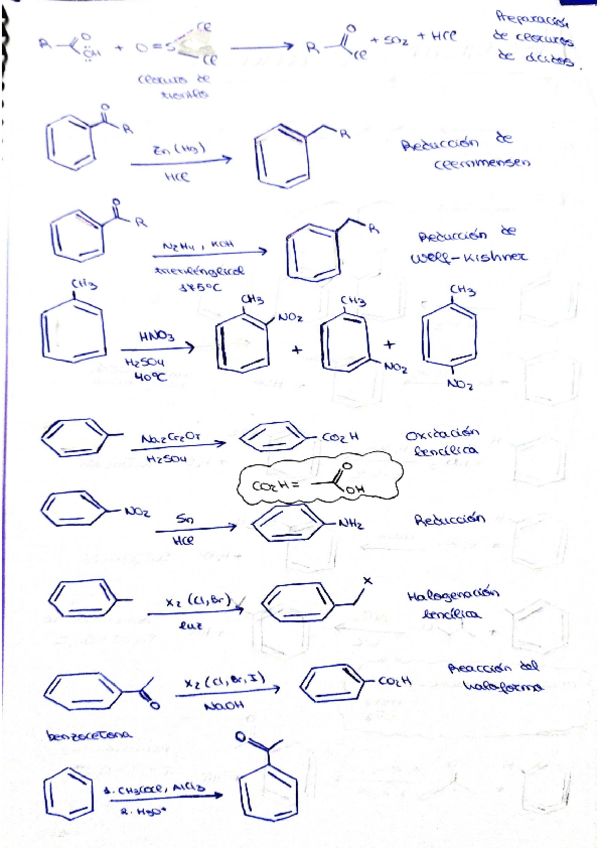 Preparación
de cloruros
de ácidos.
R O OH + O=S Cl Cl → R O Cl + SO2 + HCl
cloruro de
tionilo
O R
Zn (Hg)
HCl
R
Reducción de
clemmensen
O R
N2H4, KOH
trietilénglicol
175ºC
R
Reducción de
Wolf-Kishner
CH3
HNO3
H2SO4
40ºC
CH3 NO2 + CH3 NO2 + CH3 NO2
Na2Cr2O7
H2SO4
CO2H
Oxidación
bencílica
CO2H = O OH
NO2
Sn
HCl
NH2
Reducción
X2 (Cl, Br)
luz
X
Halogenación
bencílica
O
X2 (Cl, Br, I)
NaOH
CO2H
Reacción del
haloformo
benzocetona
1. CH3COCl, AlCl3
2. H3O+
O